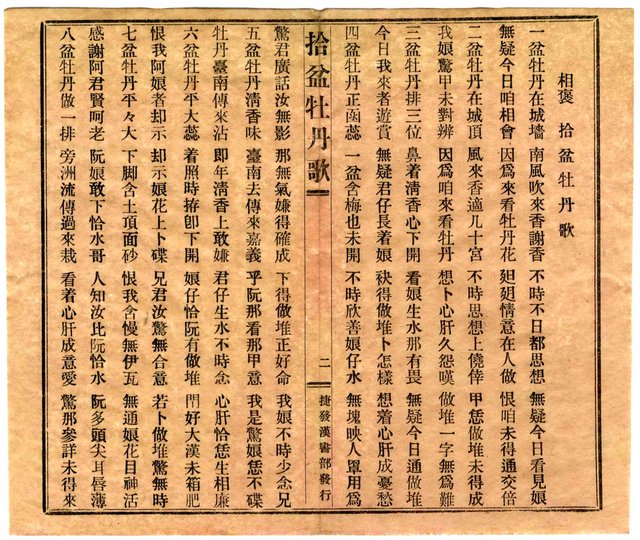 相褒 拾盆牡丹歌
一盆牡丹在城墻 南風吹來香謝香 不時不日都思想 無疑今日看見娘
無疑今日咱相會 因爲來看牡丹花 廻廻情意在人做 恨咱未得通交倍
二盆牡丹在城頂 風來香適几十宮 不時思想上僥倖 甲恁做堆未得成
我娘驚甲未對辨 因爲咱來看牡丹 想卜心肝久怨嘆 做堆一字無爲難
三盆牡丹排三位 鼻着清香心下開 看娘生水那有畏 無疑今日通做堆
今日我來者遊賞 無疑君仔長着娘 袂得做堆卜怎樣 想着心肝成憂愁
四盆牡丹正函蕊 一盆含梅也未開 不時欣善娘仔水 無塊映人單用爲
拾盆牡丹歌 二 捷發漢書部發行
驚君廣話汝無影 那無氣嫌得確成 下得做堆正好命 我娘不時少念兄
五盆牡丹淸香味 臺南去傳來嘉義 乎阮那看那甲意 我是驚娘恁不碟
牡丹臺南傳來沾 即年淸香上敢嫌 君仔生水不時念 心肝恰恁生相廉
六盆牡丹平大蕊 着照時拵卽下開 娘仔恰阮有做堆 門好大漢未箱肥
恨我阿娘者却示 却示娘花上卜碟 兄君汝驚無合意 若卜做堆驚無時
七盆牡丹平々大 下脚含土頂面砂 恨我含慢無伊瓦 無通娘花目神活
感謝阿君賢呵老 阮娘敢下恰水哥 人知汝比阮恰水 阮多頭尖耳唇薄
八盆牡丹做一排 旁洲流傳過來栽 看着心肝成意愛 驚那參詳未得來